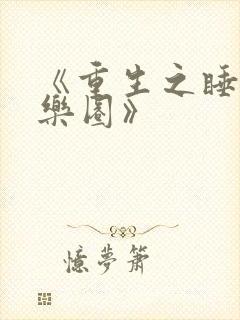 《重生之睡
樂園》
憶夢蕭